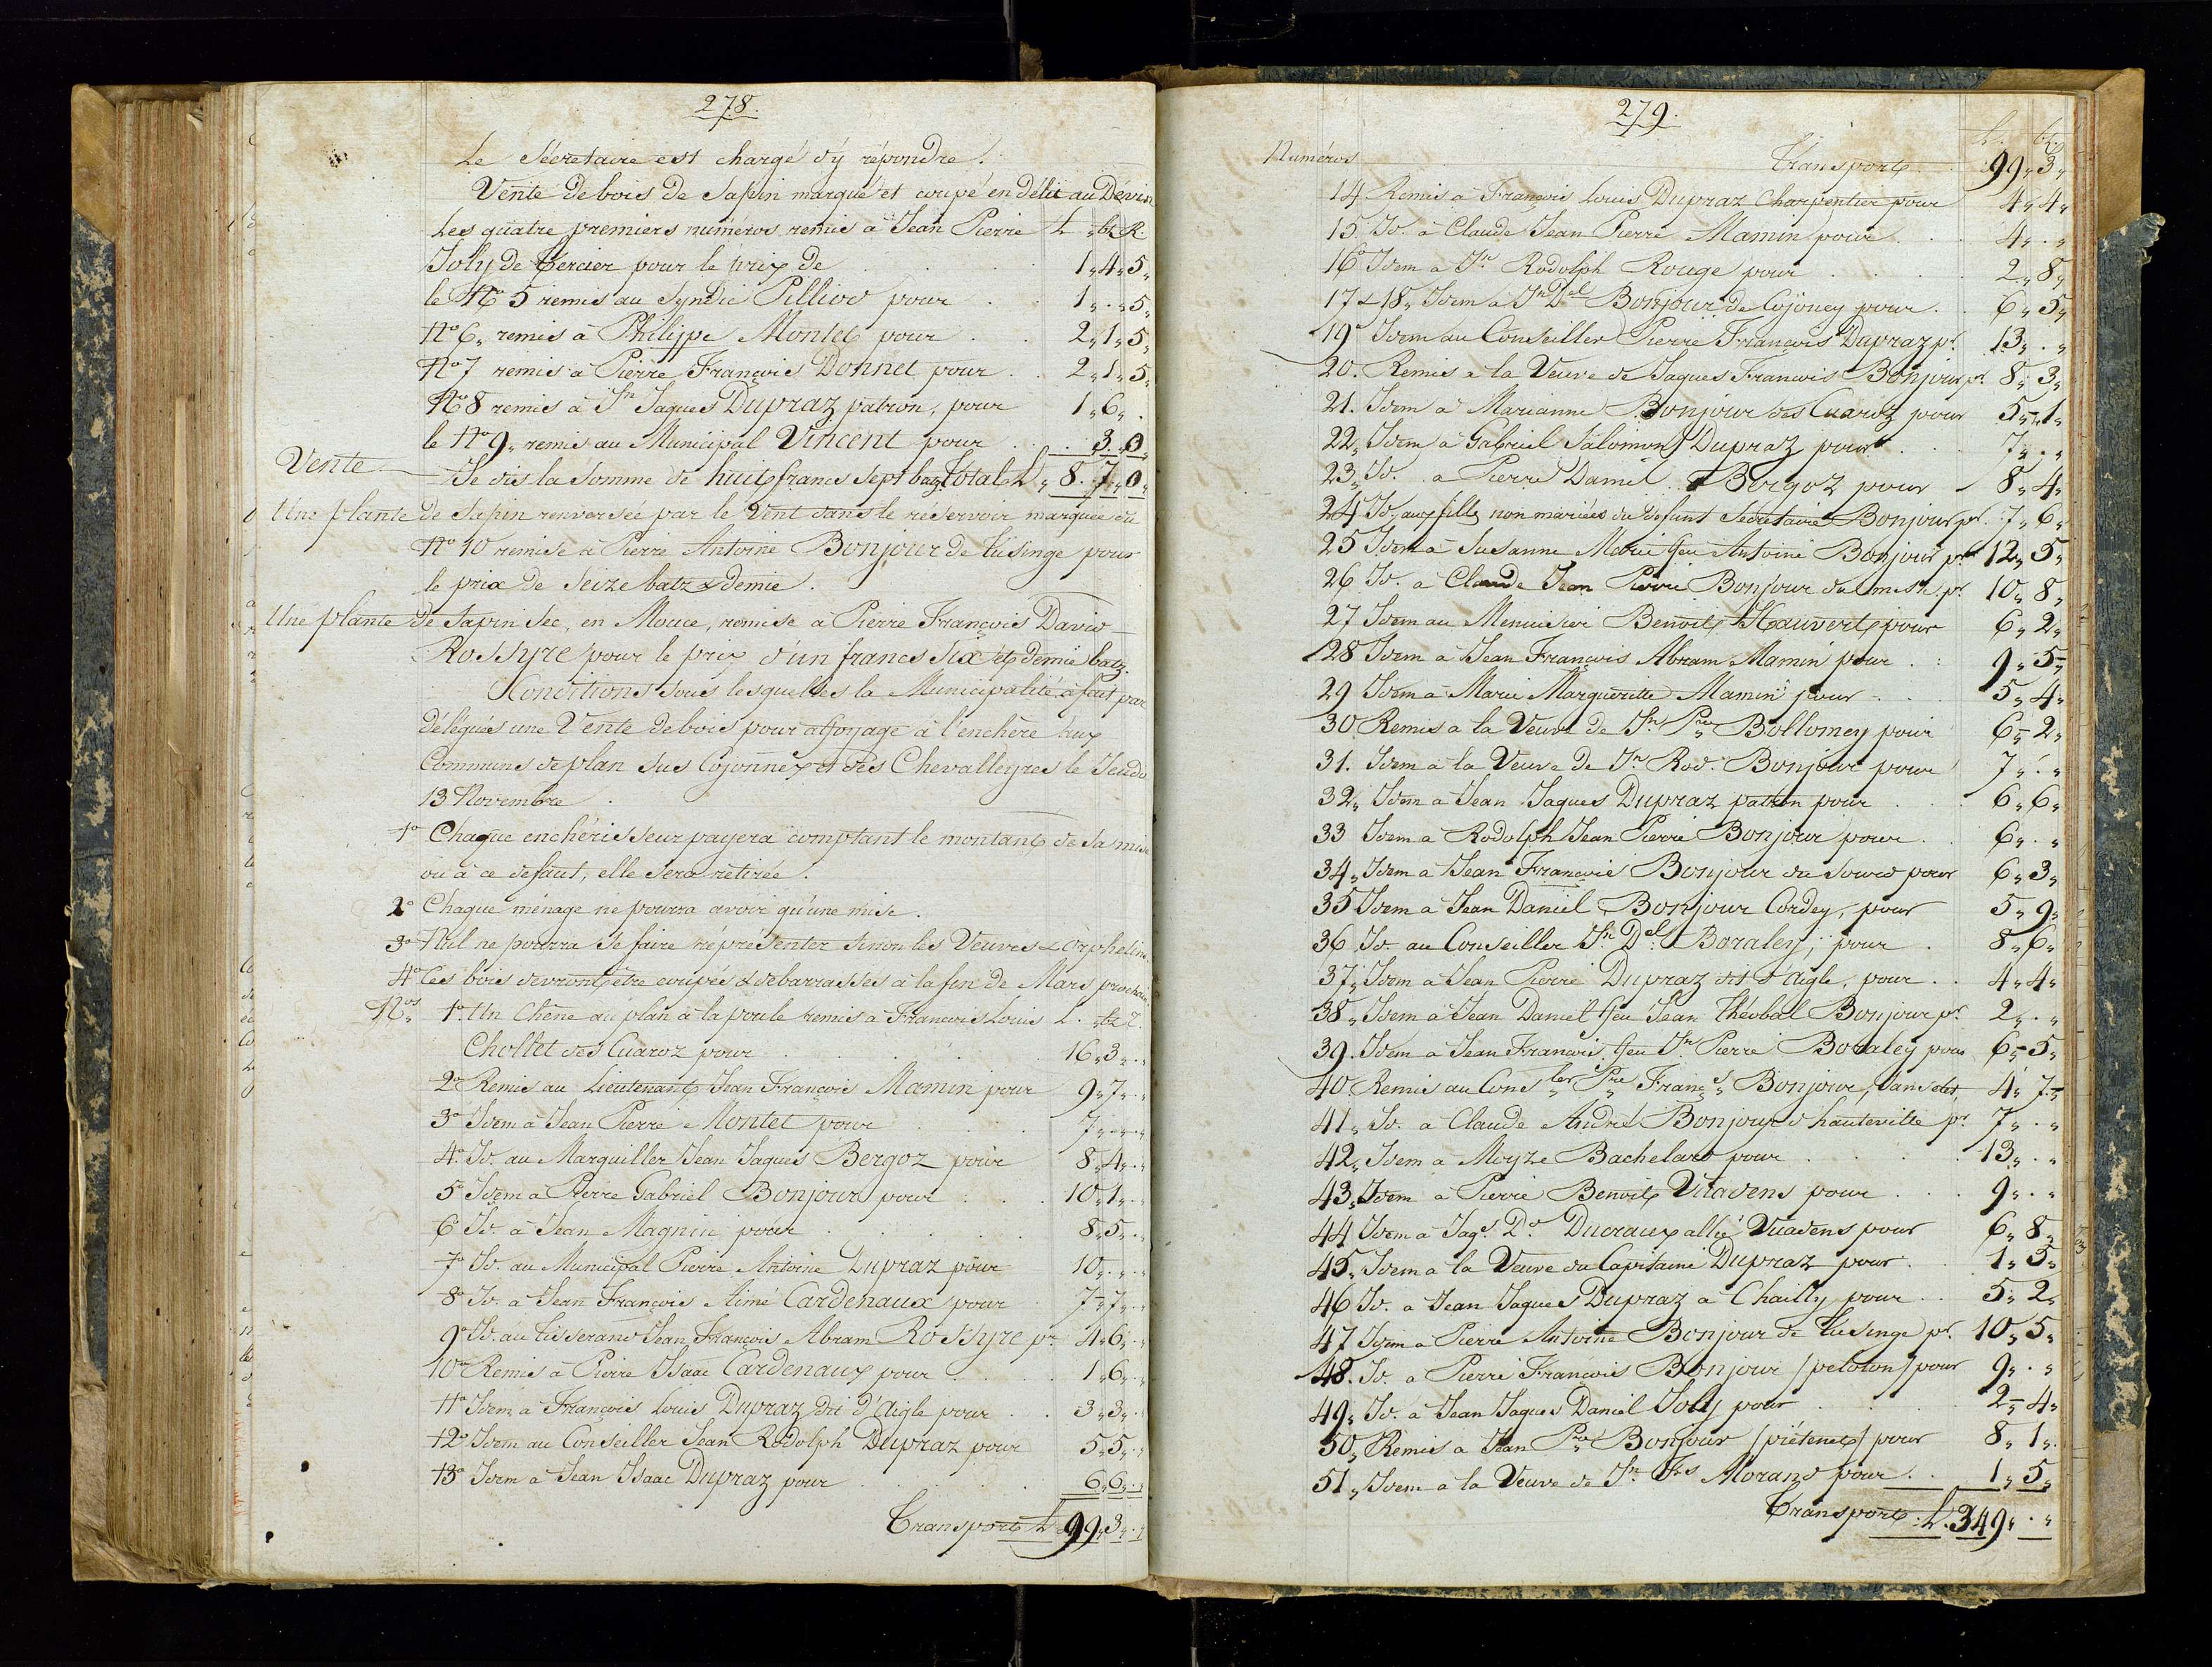 278.
Le Sécretaire est chargé d'y répondre.
Vente de bois de Sapin marqué et coupé en délit au Dévin
Les quatre premiers numéros remis à Jean Pierre L. bz R.
Joly de Tercier pour le prix de . . . 1„4„5„
le No 5 remis au Syndic Pilliod pour . . 1„.„5„
No 6„ remis à Philippe Montet pour . . 2„1„5„
No 7 remis à Pierre François Donnet pour . . 2„1„5„
No 8 remis à Jn Jaques Dupraz patron, pour 1„6„.
le No 9„ remis au Municipal Vincent pour . . . 3„0„
Vente Je dis la Somme de huit francs Sept batz Total L„ 8„7„0„
Une plante de Sapin renversée par le Vent dans le réservoir marquée du
No 10 remise à Pierre Antoine Bonjour de Tusinge pour
le prix de Seize batz & demie.
Une plante de Sapin Sec, en Mouce, remise à Pierre François David
Rossyre pour le prix d'un francs Six et demie batz.
Conditions Sous lesquelles la Municipalité à fait par
délégués une Vente de bois pour affoyage à l'enchère aux
Communs de plan Sus Cojonnex et dès Chevalleyres le Jeudi
13 Novembre.
1o Chaque enchérisseur payera comptant le montant de Sa mise
ou à ce defaut, elle Sera retirée.
2o Chaque ménage ne pourra avoir qu'une mise.
3o Nul ne pourra Se faire réprésenter Sinon les Veuves & Orphelins.
4o Les bois devront être coupés & débarrassés à la fin de Mars prochain
Nos 1o Un Chêne au plan à la poule remis à François Louis L. bz
Chollet des Cuaroz pour . . . . 16„3„.„
2o Remis au Lieutenant Jean François Mamin pour 9„7„.„
3o Idem à Jean Pierre Montet pour . . . 7„.„.„
4o Id. au Marguiller Jean Jaques Bergoz pour 8„4„.„
5o Idem à Pierre Gabriel Bonjour pour . . . 10„1„.
6o Id. à Jean Magnin pour . . . . . 8„5„.„
7o Id. au Municipal Pierre Antoine Dupraz pour 10„.„.
8o Id. à Jean François Aimé Cardenaux pour . 7„7„.
9o Id. au tisserand Jean François Abram Rossyre pr 4„6„.
10o Remis à Pierre Isaac Cardenaux pour . . . 1„6„.
11o Idem à François Louis Dupraz dit d'Aigle pour . . 3„3„.
12o Idem au Conseiller Jean Rodolph Dupraz pour 5„5„.
13o Idem à Jean Isaac Dupraz pour . . . . . 6„6„.
Transport L 99„3„.
279.
Numéros L. bz.
Transport . . 99„3„
14 Remis à François Louis Dupraz Charpentier pour 4„4„
15. Id. à Claude Jean Pierre Mamin pour . . . 4„.„
16o Idem à Jn Rodolph Rouge pour . . . . 2„8„
17 & 18„ Idem à Jn Del Bonjour de Cojoney pour . 6„5„
19o Idem au Conseiller Pierre François Dupraz pr. 13„.„
20. Remis à la Veuve de Jaques François Bonjour pr. 8„3„
21. Idem à Marianne Bonjour des Cuaroz pour 5„1„
22„ Idem à Gabriel Salomon Dupraz pour . . . 7„.„
23„ Id. à Pierre Daniel Bergoz pour 8„4„
24 Id. aux filles non mariées du defunt Secretaire Bonjour pr. 7„6„
25 Idem à Susanne Marie feu Antoine Bonjour pr 12„5„
26 Id. à Claude Jean Pierre Bonjour pr. 10„8„
27 Idem au Menuisier Benoit Hauvert pour 6„2„
28 Idem à Jean François Abram Mamin pour . : 9„5„
29 Idem à Marie Margueritte Mamin pour . . . 5„4„
30 Remis à la Veuve de Jn Pre Bollomey pour 6„2„
31. Idem à la Veuve de Jn Rod. Bonjour pour 7„.„
32„ Idem à Jean Jaques Dupraz patron pour . . 6„6„
33 Idem à Rodolph Jean Pierre Bonjour pour . . 6„.„
34„ Idem à Jean François Bonjour du Sourd pour 6„3„
35 Idem à Jean Daniel Bonjour Cordey, pour 5„9„
36 Id. au Conseiller Jn Del Boraley, pour . 8„6„
37„ Idem à Jean Pierre Dupraz dit d'Aigle, pour . . 4„4„
38„ Idem à Jean Daniel feu Jean Théobal Bonjour pr. 2„.„
39. Idem à Jean François feu Jn Pierre Boraley pour 6„5„
40 Remis au Consler Pre Françs Bonjour, 4„7„
41„ Id. à Claude André Bonjour d'hauteville pr. 7„.„
42„ Idem à Moyze Bachelard pour . . . . 13„.„
43„ Idem à Pierre Benoit Vuadens pour . . . 9„.„
44 Idem à Jaqs. Dd. Ducraux allié Vuadens pour 6„8„
45„ Idem à la Veuve du Capitaine Dupraz pour . 1„5„
46 Id. à Jean Jaques Dupraz à Chailly pour . . 5„2„
47 Idem à Pierre Antoine Bonjour de Tusinge pr. 10„5„
48. Id. à Pierre François Bonjour /peloton/ pour 9„.„
49„ Id. à Jean Jaques Daniel Joly pour . . . 2„4„
50„ Remis à Jean Pre Bonjour /piétenet/ pour 8„1„.
51„ Idem à la Veuve de Jn Frs Morand pour . . 1„5„
Transport L. 349„.„